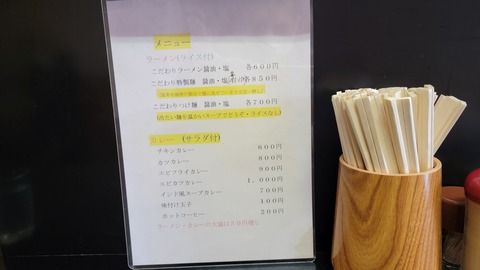 メニュー
ラーメン(ライス付)
こだわりラーメン 醤油・塩 各600円
こだわり特製麺 醤油・塩 各850円
こだわりつけ麺 醤油・塩 各700円
(冷たい麺を温かいスープでどうぞ・ライスなし)
カレー (サラダ付)
チキンカレー 600円
カツカレー 800円
エビフライカレー 900円
エビカツカレー 1,000円
インド風スープカレー 700円
味付け玉子 100円
ホットコーヒー 200円
ラーメン・カレーの大盛は